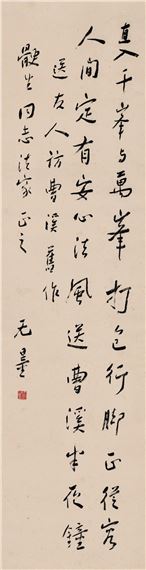 直入千峰与万峯打包行脚正從容
人间定有安心法風送曹溪半夜鐘
送友人访曹溪舊作
融生同志法家正之
无量